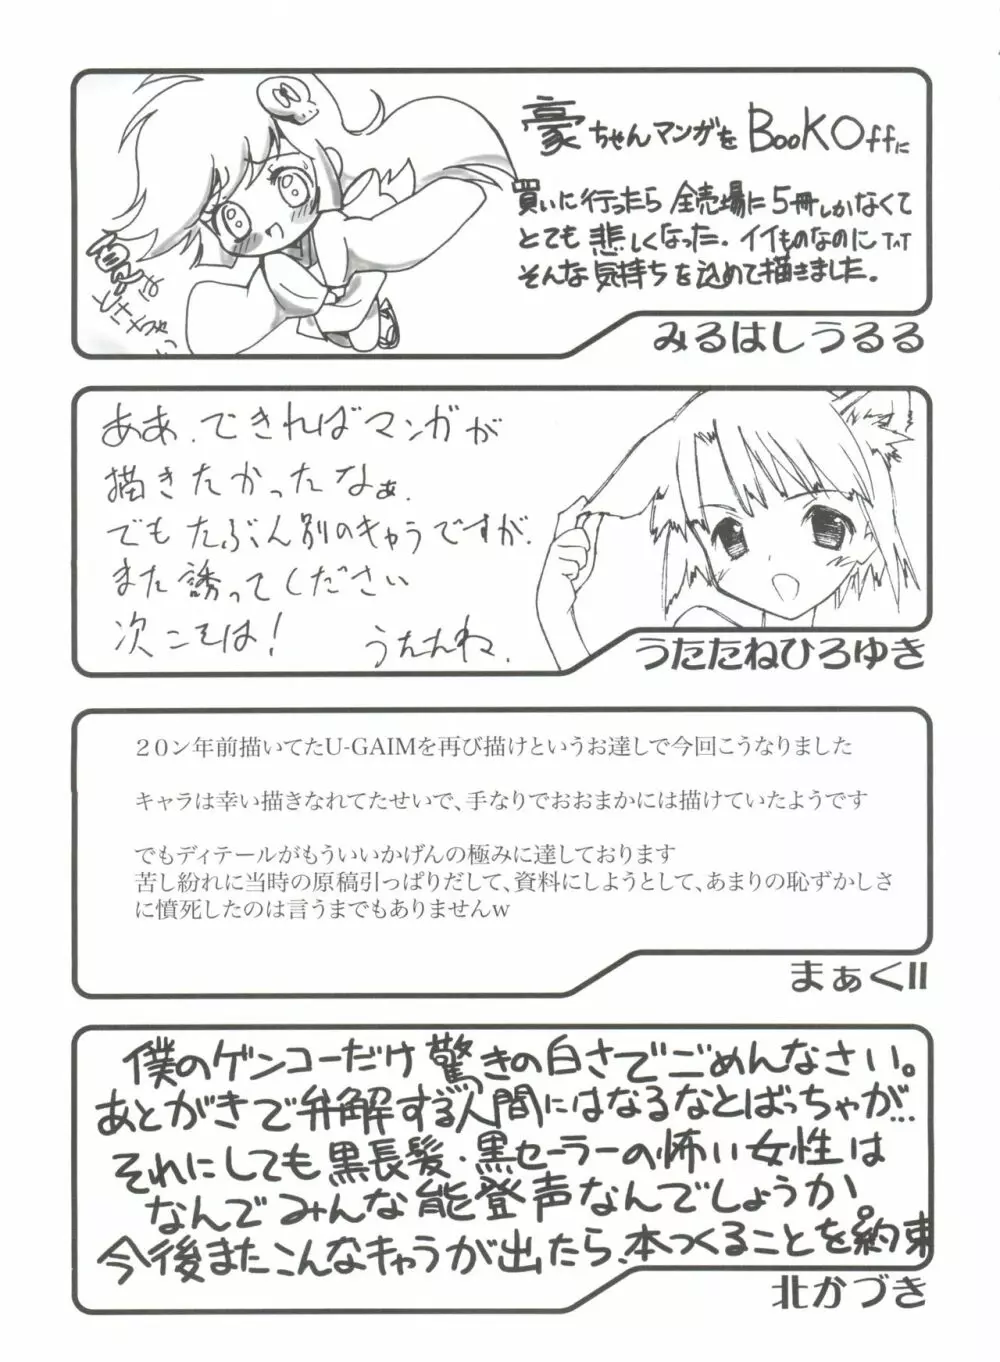 豪ちゃんマンガをBooKOffに
買いに行ったら全売場に5冊しかなくて
とても悲しくなった。イイものなのにTnT
そんな気持ちを込めて描きました。
みるはしうるる
ああ、できればマンガが
描きたかったなぁ。
でもたぶん別のキャラですが、
また誘ってください
次こそは!
うたたね。
うたたねひろゆき
２０ン年前描いてたU-GAIMを再び描けというお達しで今回こうなりました
キャラは幸い描きなれてたせいで、手なりでおおまかには描けていたようです
でもディテールがもういいかげんの極みに達しております
苦し紛れに当時の原稿引っぱりだして、資料にしようとして、あまりの恥ずかしさ
に憤死したのは言うまでもありませんw
まぁくII
僕のゲンコーだけ驚きの白さでごめんなさい。
あとがきで弁解する人間にはなるなとばっちゃが...
それにしても黒長髪・黒セーラーの怖い女性は
なんでみんな能登声なんでしょうか。
今後またこんなキャラが出たら、本つくることを約束
北かづき